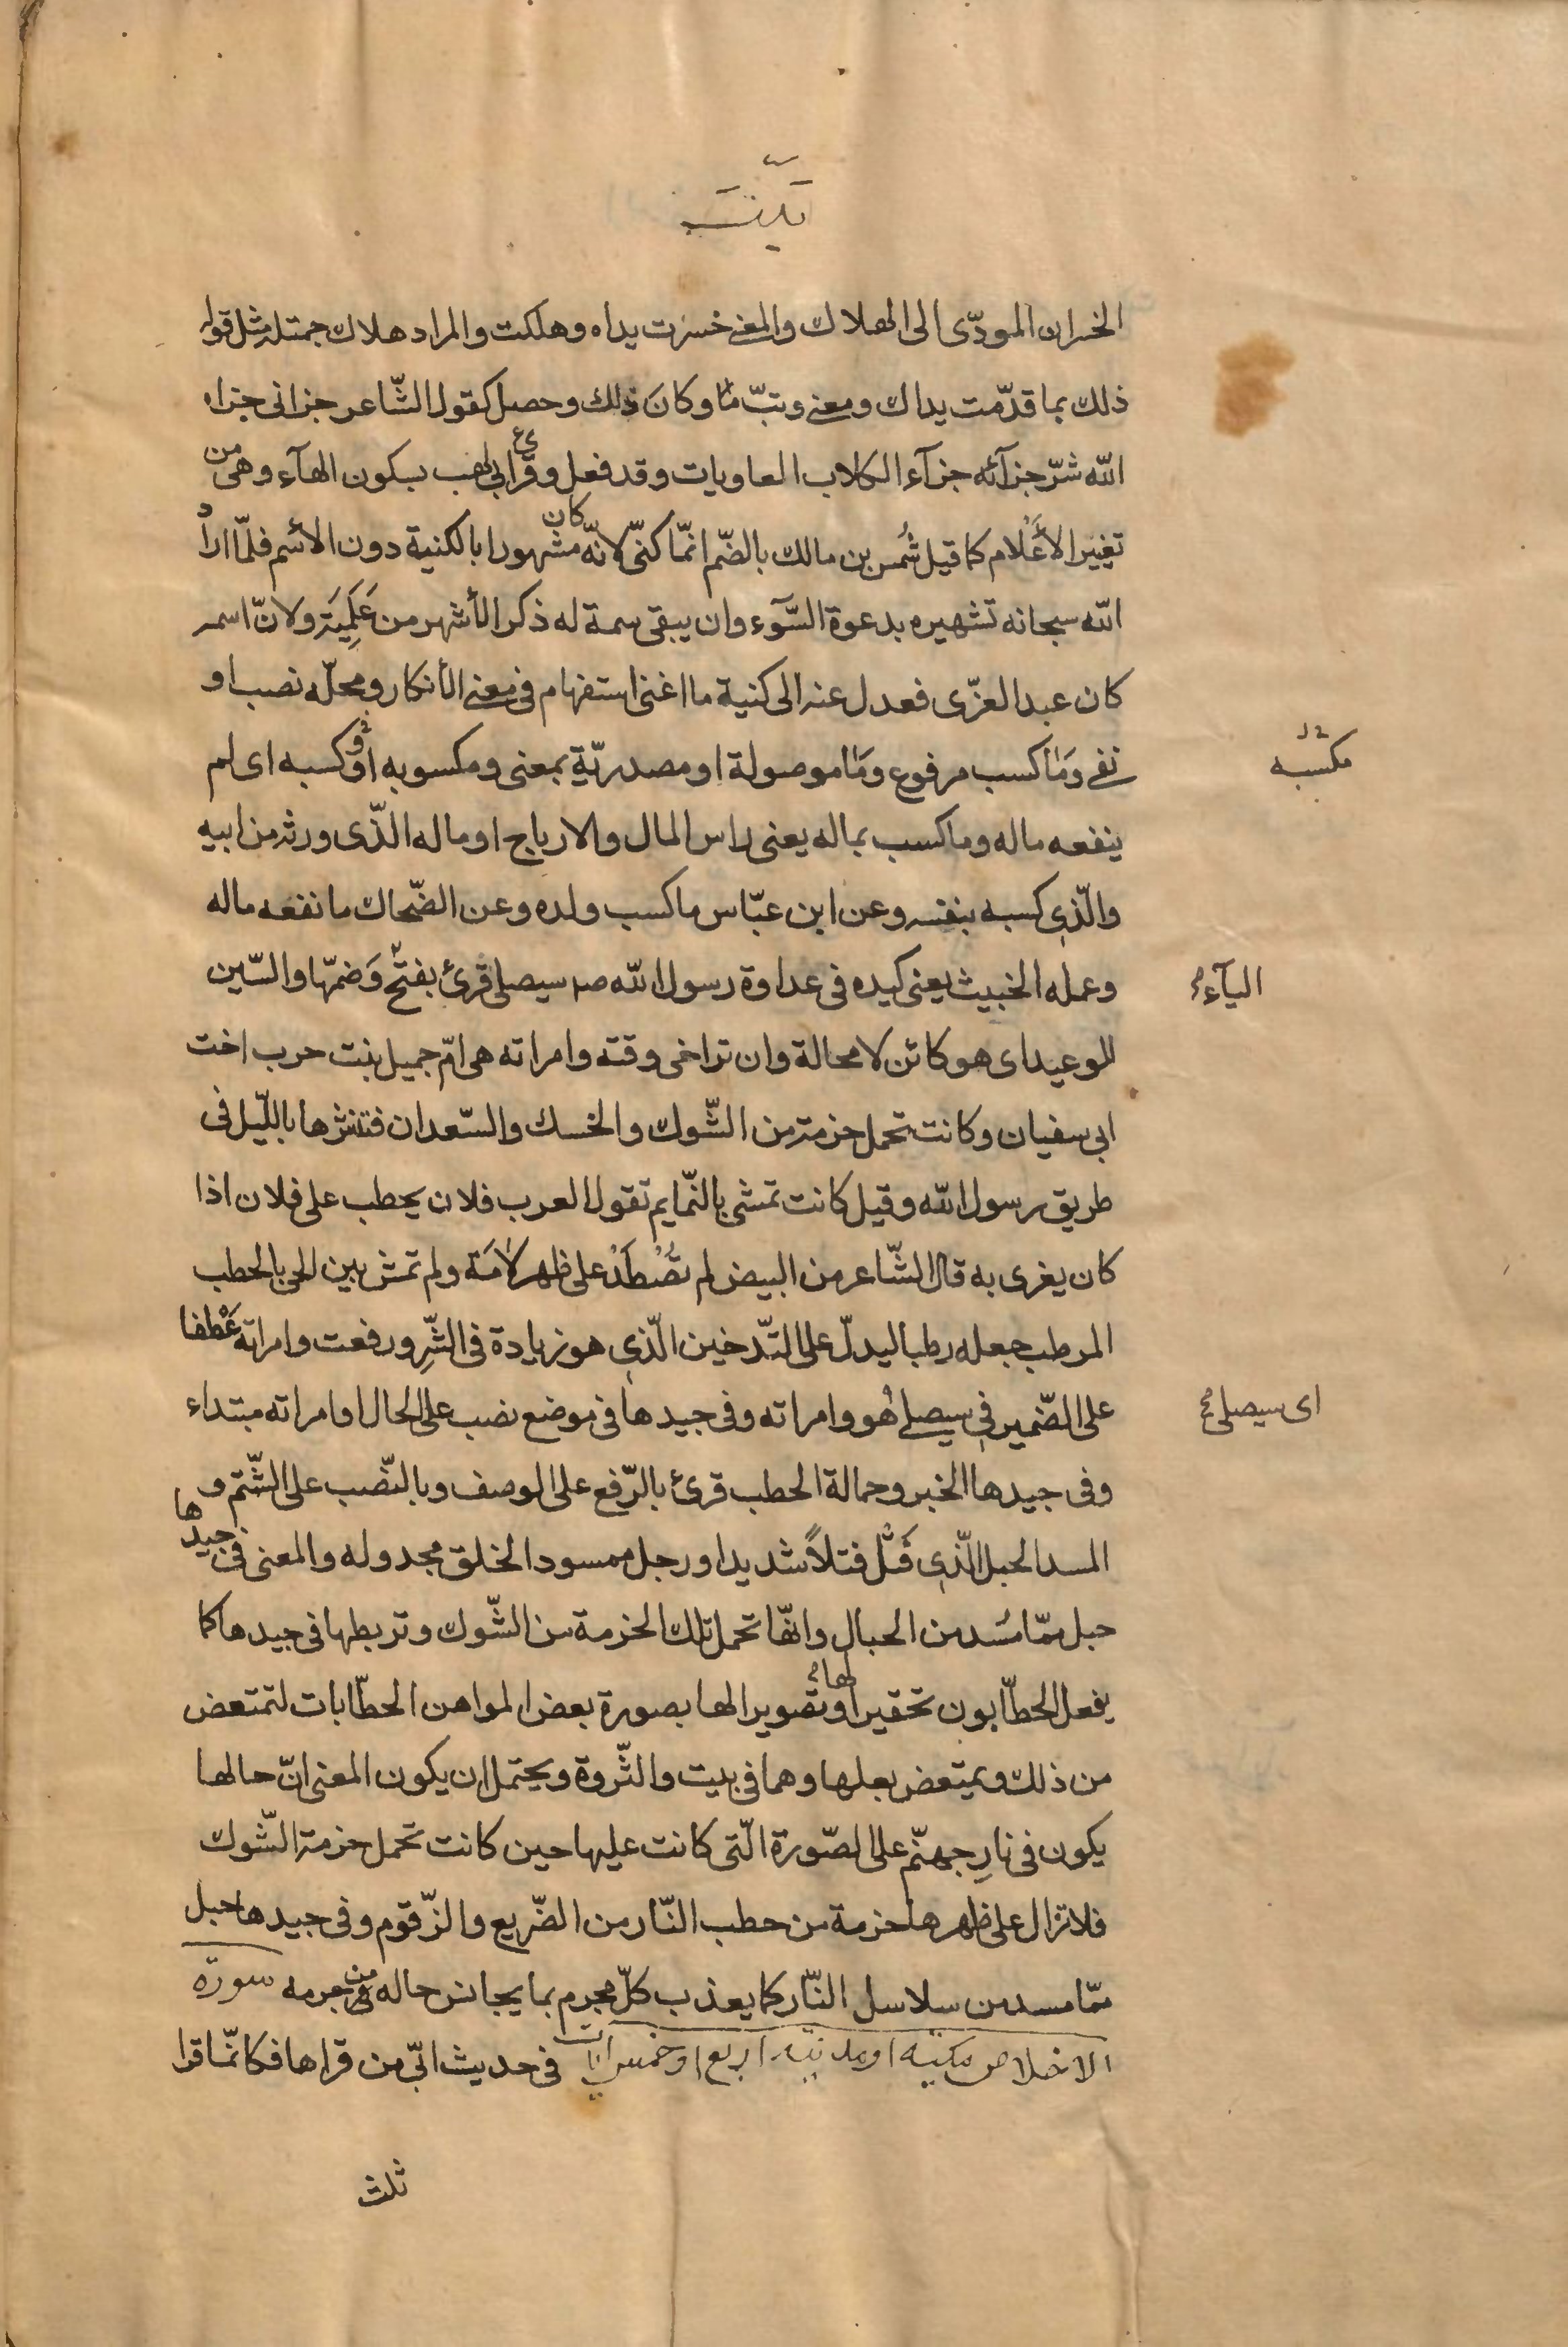 تبّت
الخسران المودّى الى الهلاك والمعنى خسرت يداه وهلكت والمراد هلاك جمتله مثل قوله
ذلك بما قدّمت يداك ومعنى وتبّ ما وكانَ ذلك وحصل كقول الشّاعر جزانى جزاه
الله شرّ جزآئه جزآء الكلاب العاويات وقد فعل وقرئ ابى لهب بسكون الهآء وهى من
تغيير الأَعْلام كما قيل شُمس بن مالك بالضّم انمّا كنىّ لانّه كان مشهورا بالكنية دون الأسم فلمّا اراد
الله سبحانه تشهيره بدعوة السّوء وان يبقى سمة له ذكر الأشهر من عَلَمِيَته ولانّ اسمه
كان عبد العزّى فعدل عنه الى كنية ما اغنى استفهام فى معنى الأنكار ومحلّه نصب او
نفى وَمَا كسب مرفوع ومَا موصولة او مصدريّة بمعنى ومكسوبه او وكسبه اى لم
مكسبه
ينفعه ماله وما كسب بماله يعنى راس المال والارباح او ماله الّذى ورثه من ابيه
والّذى كسبه بنفسه وعن ابن عبّاس ما كسب ولده وعن الضّحاك ما نفعه ماله
وعمله الخبيث يعنى كيده فى عداوة رسول الله صم سيصلى قرئ بفتح وَضمّها والسّين
اليآء
للوعيد اى هو كائن لا محالة وان تراخى وقته وامراته هى امّ جميل بنت حرب اخت
ابى سفيان وكانت تحمل حزمة من الشّوك والخسك والسّعدان فتنثرها باللّيل فى
طريق رسول الله وقيل كانت تمشى بالنّمايم تقول العرب فلان يحطب على فلان اذا
كان يغرى به قال الشّاعر من البيض لم تُصْطَدْ على ظهر لامَة ولم تمش بين الحى بالحطب
المرطب جعله رطبا ليدلّ على التّدخين الّذى هو زيادة فى الشّرِ ورفعت وامراته عَطْفا
على الضّمير فى سيصلى هُو وامراته وفى جيدها فى موضع نصب على الحال او امراته مبتداء
اى سيصلى
وفى جيدها الخبر وحمالة الحطب قرئ بالرّفع على الوصف وبالنّصب على الشّتم و
المسد الحبل الّذى فُتل فتلاً شديدا ورجل ممسود الخلق مجدوله والمعنى فى جيدها
حبل ممّا مُسد من الحبال وانهّا تحمل تلك الحزمة من الشّوك وتربطها فى جيدها كما
يفعل الحطّابون تحقيرا لها او تصويرا لها بصورة بعض المواهن الحطّابات لتمتعض
من ذلك ويمتعض بعلها وهما فى بيت والثّروة ويحتمل ان يكون المعنى انّ حالها
يكون فى نارِ جهنّم على الصّورة الّتى كانت عليها حين كانت تحمل حزمة الشّوك
فلا تزال على ظهرها حزمة من حطب النّار من الضّريع والزّقوم وفى جيدها حبل
ممّا مسد من سلاسل النّار كما يعذب كلّ مجرم بما يجانس حاله فى جرمه سورة
الاخلاص مكيّة او مدنيّة اربع او خمس ايات فى حديث ابىّ من قراها فكانمّا قرا
ثلث